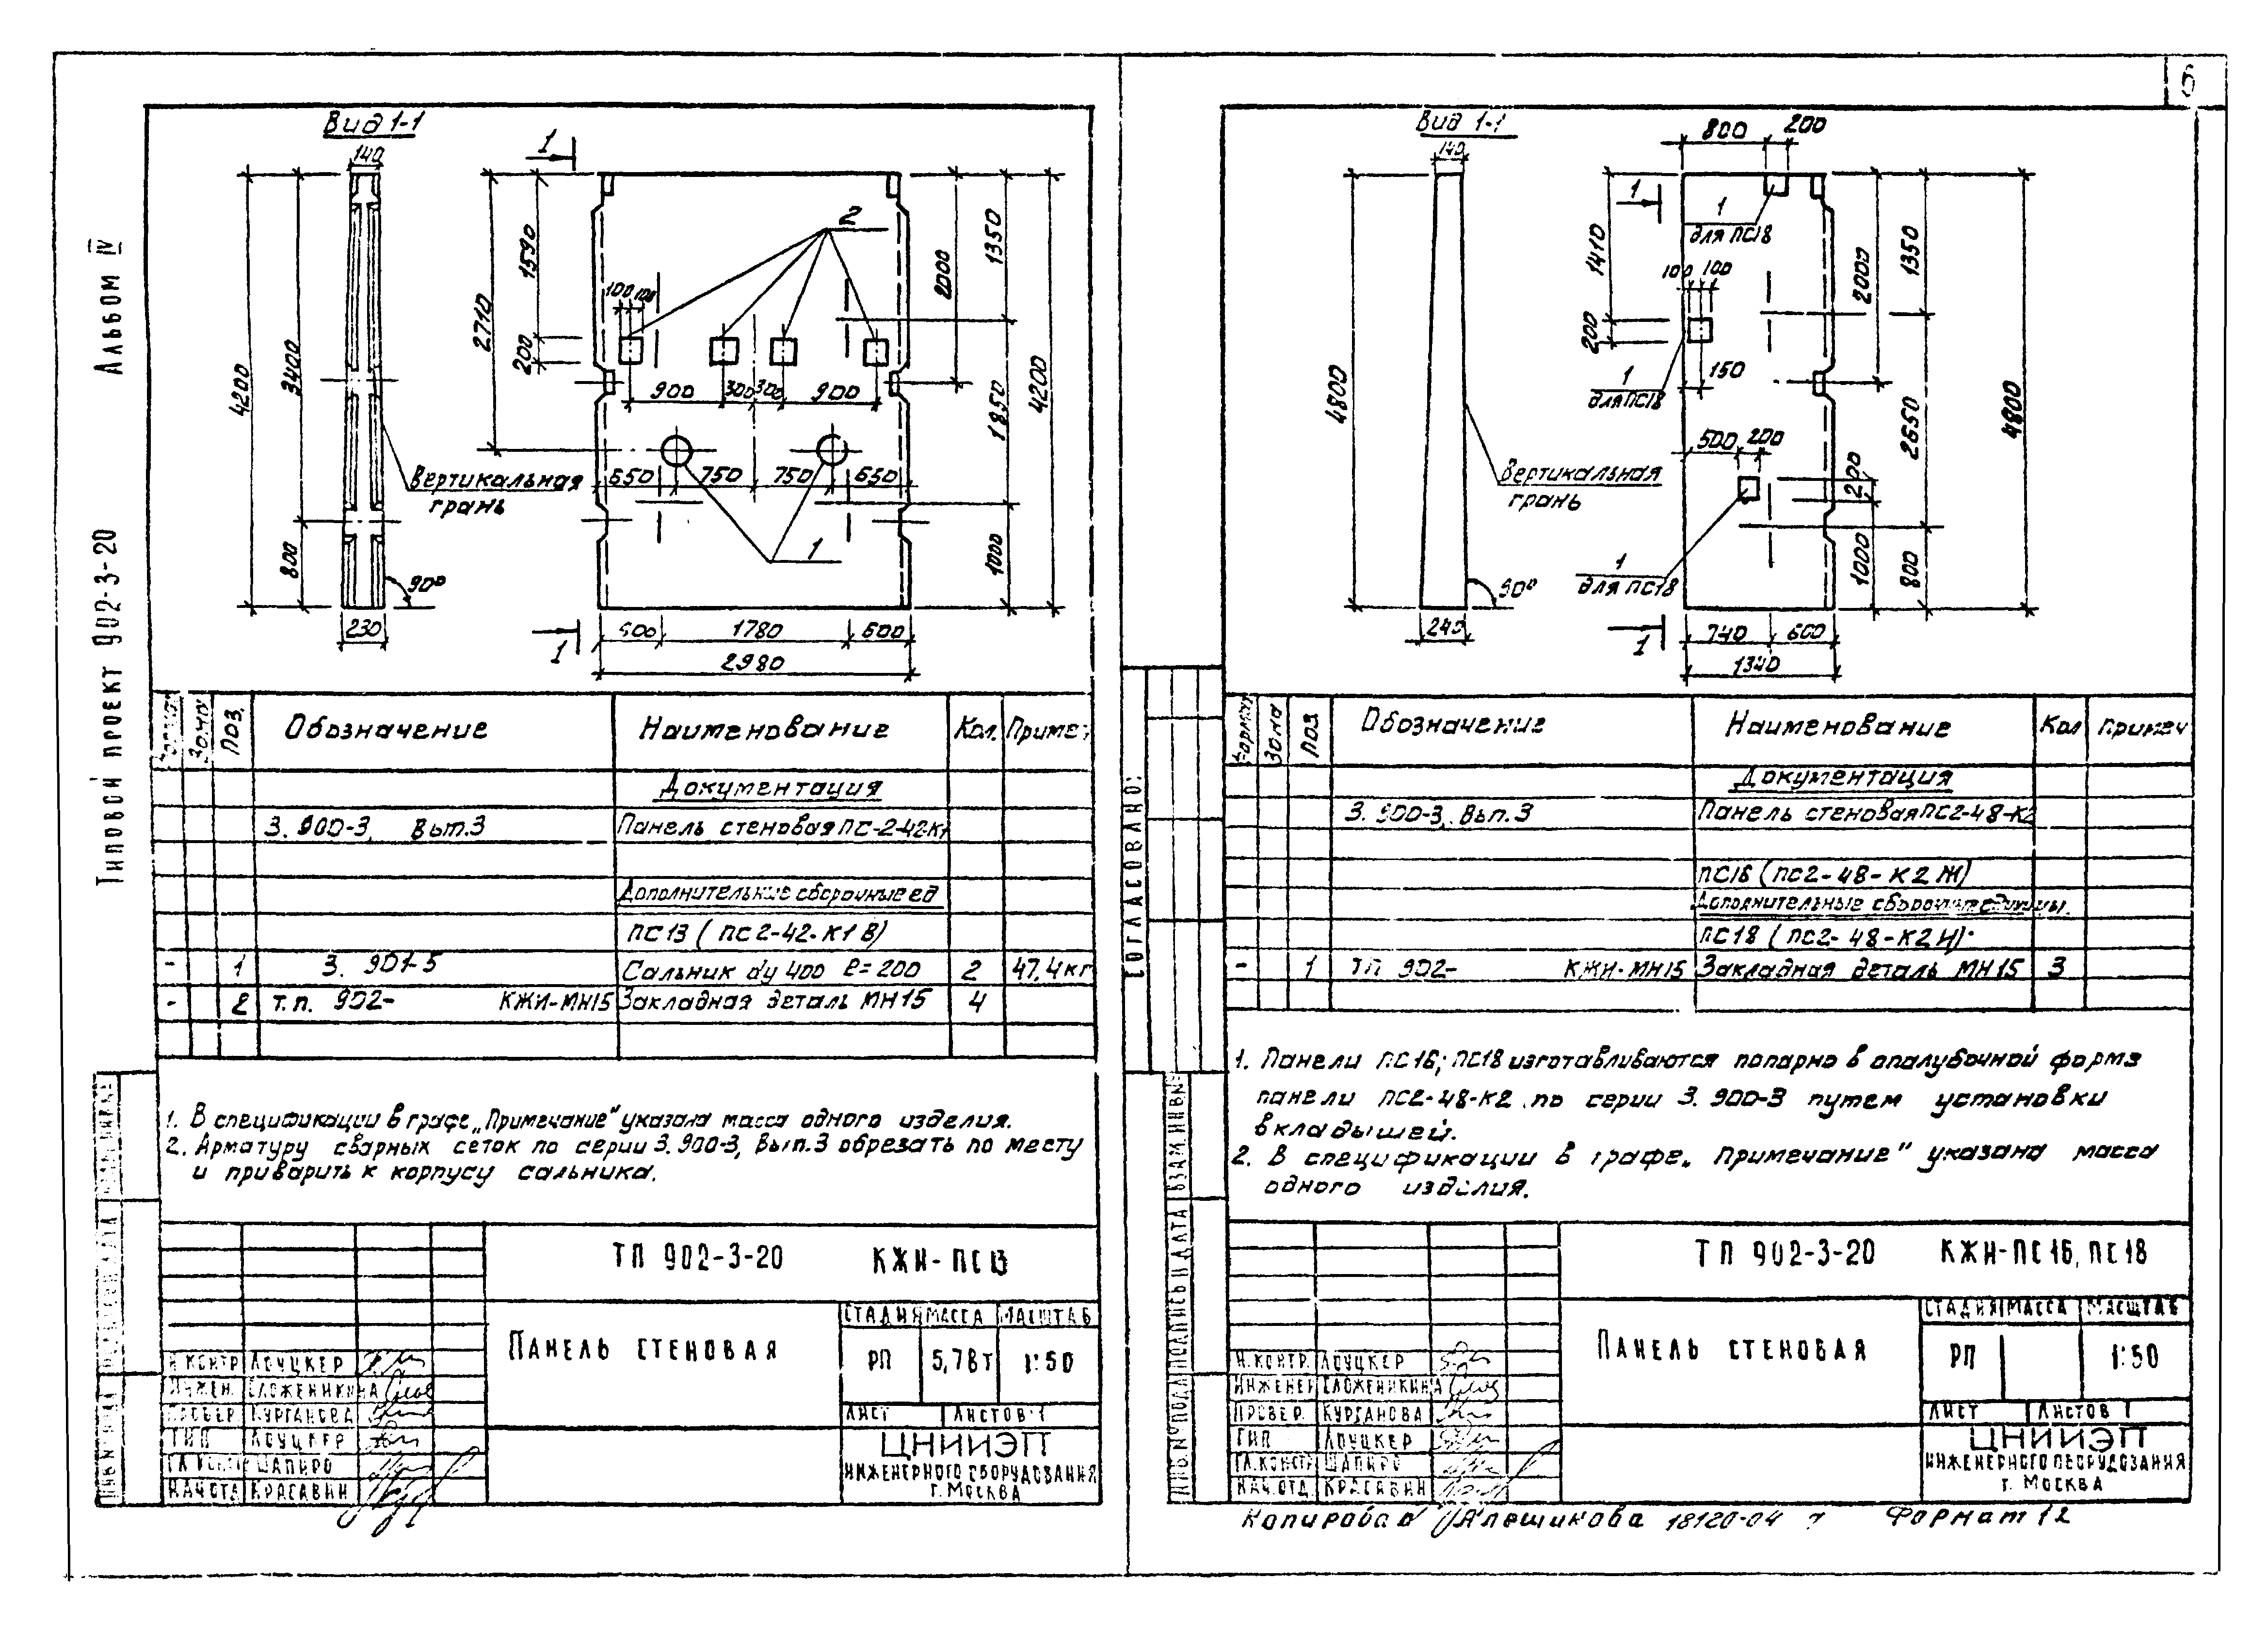 6
Альбом IV
Типовой проект 902-3-20
Вид 1-1
140
4200
3400
800
230
90°
Вертикальная
грань
1
2710
1590
200
100 100
2
900 300 300 900
650 750 750 650
1
2000
1350
1850
1000
4200
600 1780 600
2980
1
Поз. Обозначение Наименование Кол. Примеч
Зона
Документация
3.900-3, Вып.3 Панель стеновая ПС-2-42-К1
Дополнительные сборочные ед
ПС13 (ПС2-42-К1В)
- 1 3.901-5 Сальник dу 400 ℓ=200 2 47.4кг
- 2 т.п. 902- КЖИ-МН15 Закладная деталь МН15 4
1. В спецификации в графе „Примечание" указана масса одного изделия.
2. Арматуру сварных сеток по серии 3.900-3, Вып.3 обрезать по месту
и приварить к корпусу сальника.
ТП 902-3-20 КЖИ-ПС13
Панель стеновая
Стадия Масса Масштаб
РП 5,78т 1:50
Лист Листов 1
ЦНИИЭП
инженерного оборудования
г. Москва
Н.контр Лоуцкер
Инжен. Сложеникина
Провер Курганова
ГИП Лоуцкер
Гл.констр Шапиро
Нач.отд Красавин
Вид 1-1
140
4800
240
90°
Вертикальная
грань
800 200
1
1410
200
1
для ПС18
100 100
150
1
для ПС18
500 200
200
1000
1
для ПС18
2000
1350
2650
800
4800
1
740 600
1340
Формат Зона Поз Обозначение Наименование Кол Примеч
Документация
3.900-3, Вып.3 Панель стеновая ПС2-48-К2
ПС16 (ПС2-48-К2Ж)
Дополнительные сборочные единицы.
ПС18 (ПС2-48-К2И)
- 1 ТП 902- КЖИ-МН15 Закладная деталь МН15 3
1. Панели ПС16; ПС18 изготавливаются попарно в опалубочной форме
панели ПС2-48-К2 по серии 3.900-3 путем установки
вкладышей.
2. В спецификации в графе „Примечание" указана масса
одного изделия.
Согласовано:
Взам.инв.№
Подпись и дата
Инв.№ подл
ТП 902-3-20 КЖИ-ПС16, ПС18
Панель стеновая
Стадия Масса Масштаб
РП 1:50
Лист Листов 1
ЦНИИЭП
инженерного оборудования
г. Москва
Н.контр. Лоуцкер
Инженер Сложеникина
Провер. Курганова
ГИП Лоуцкер
Гл.констр Шапиро
Нач.отд. Красавин
Копировал Алешикова 18120-04 7 Формат 12